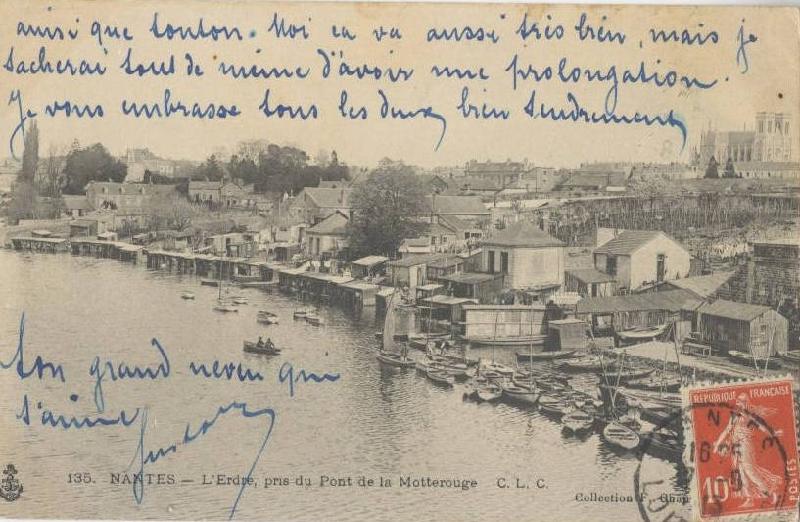 ainsi que tonton. Moi ça va aussi très bien, mais je
tacherai tout de même d'avoir une prolongation.
Je vous embrasse tous les deux bien tendrement
Ton grand neveu qui
t'aime
135. NANTES — L'Erdre, pris du Pont de la Motterouge C. L. C.
Collection F. Chap
REPUBLIQUE FRANÇAISE
10
POSTES